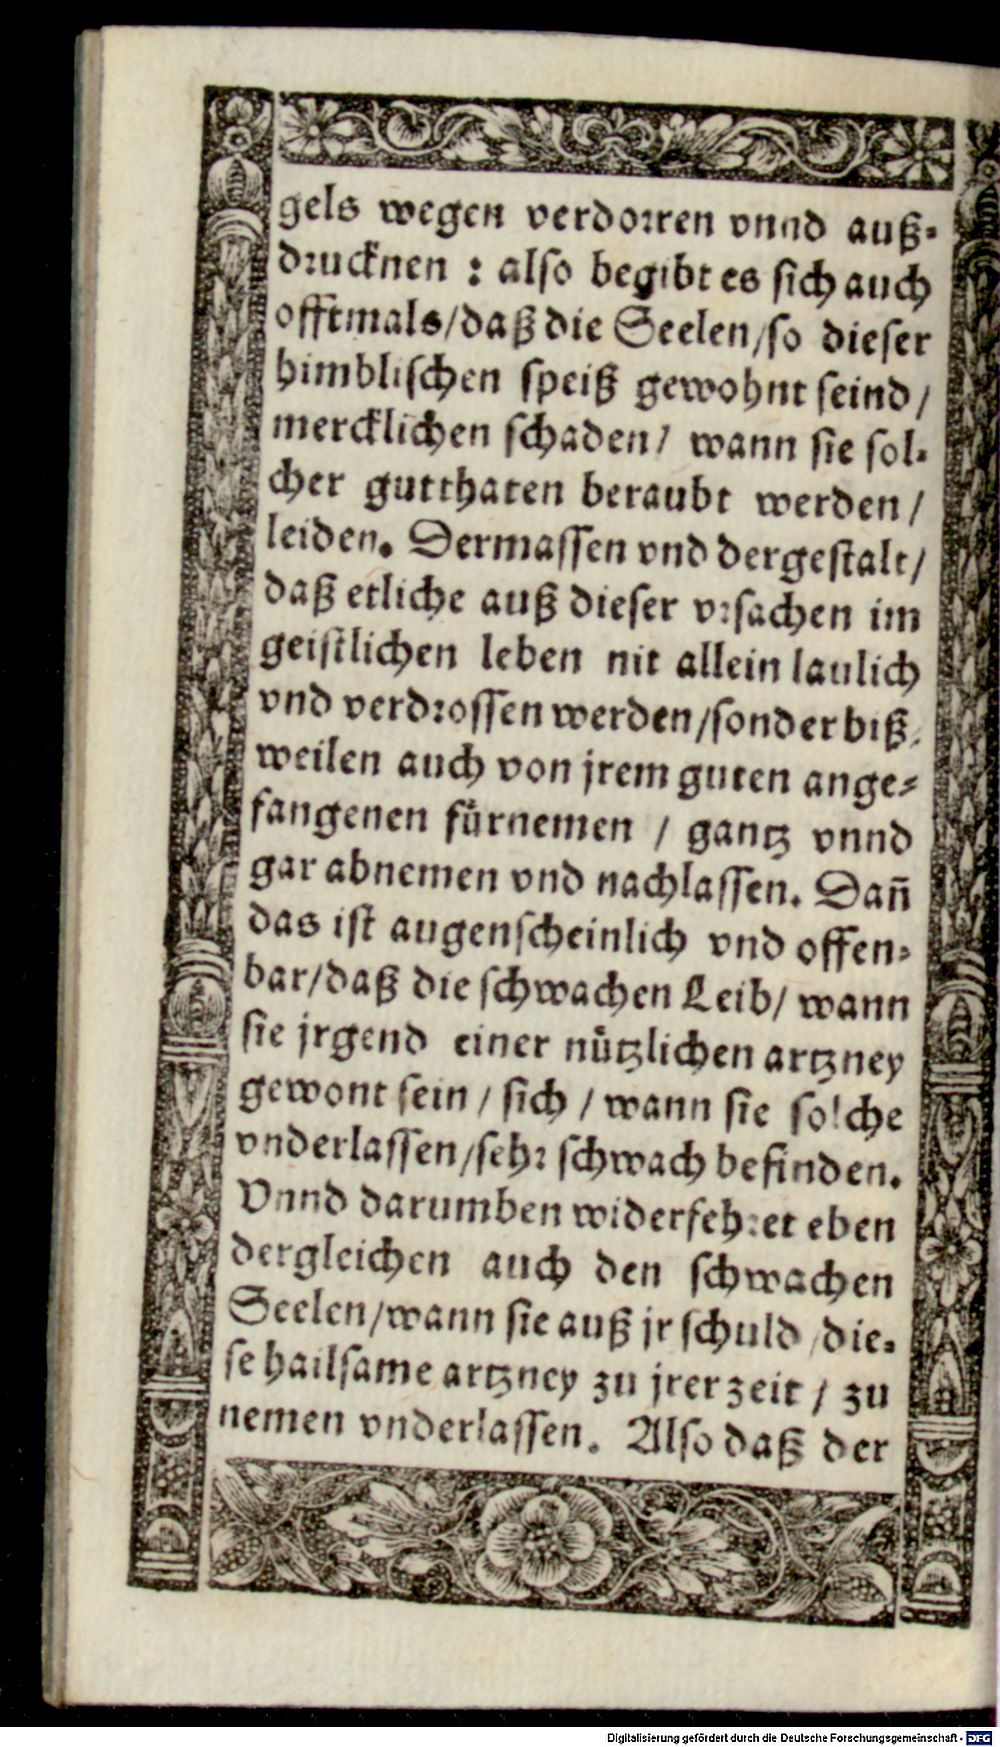 gels wegen verdorren vnnd auß-
drucknen : also begibt es sich auch
offtmals/daß die Seelen/so dieser
himblischen speiß gewohnt seind/
mercklichen schaden/ wann sie sol-
cher gutthaten beraubt werden/
leiden. Dermassen vnd dergestalt/
daß etliche auß dieser vrsachen im
geistlichen leben nit allein laulich
vnd verdrossen werden/sonder biß-
weilen auch von jrem guten ange-
fangenen fürnemen / gantz vnnd
gar abnemen vnd nachlassen. Dañ
das ist augenscheinlich vnd offen-
bar/daß die schwachen Leib/ wann
sie jrgend einer nützlichen artzney
gewont sein / sich / wann sie solche
vnderlassen/sehr schwach befinden.
Vnnd darumben widerfehret eben
dergleichen auch den schwachen
Seelen/wann sie auß jr schuld/die-
se hailsame artzney zu jrer zeit / zu
nemen vnderlassen. Also daß der
Digitalisierung gefördert durch die Deutsche Forschungsgemeinschaft - DFG